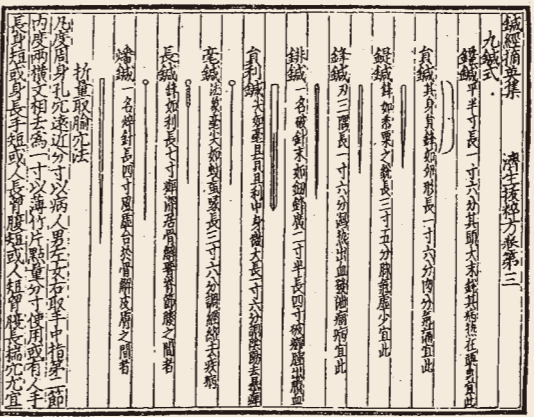 鍼經摘英集　濟生拔粹方卷第三
九鍼式
鑱鍼平半寸長一寸六分其頭大末銳其病熱在頭身宜此
員鍼其身員鋒如卵形長一寸六分肉分氣滿宜此
鍉鍼鋒如黍粟之銳長三寸五分脉氣虛少宜此
鋒鍼刃三隅長一寸六分瀉熱出血發泄痼病宜此
鈹鍼一名破鍼末如劔鋒廣二寸半長四寸破癰腫出膿血
員利鍼尖如氂且員且利中身微大長一寸六分調陰陽去暴痺
毫鍼法象毫尖如蚊虻喙長三寸六分調經絡去疾病
長鍼鋒如利長七寸痺深居骨解腰脊節腠之間者
燔鍼一名焠針長四寸風虛合於骨解皮膚之間者
折量取腧穴法
凡度周身孔穴遠近分寸以病人男左女右取手中指第二節
內度兩橫文相去為一寸以薄竹片點量分寸使用或有人手
長身短或身長手短或人長胷腹短或人短胷腹長揣穴尤宜